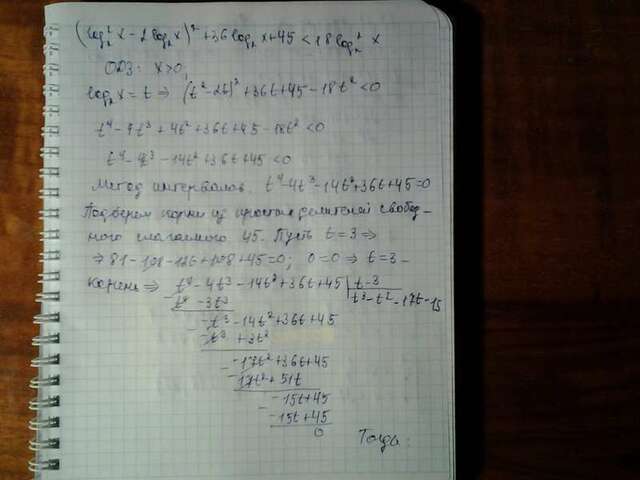 (log₂²x - 2log₂x)² + 36log₂x + 45 < 18log₂²x
ОДЗ: x>0;
log₂x = t ⇒ (t² - 2t)² + 36t + 45 - 18t² < 0
t⁴ - 4t³ + 4t² + 36t + 45 - 18t² < 0
t⁴ - 4t³ - 14t² + 36t + 45 < 0
Метод интервалов. t⁴ - 4t³ - 14t² + 36t + 45 = 0
Подберем корни из простых делителей свобод-
ного слагаемого 45. Пусть t = 3 ⇒
⇒ 81 - 108 - 126 + 108 + 45 = 0; 0 = 0 ⇒ t = 3 -
корень ⇒ t⁴ - 4t³ - 14t² + 36t + 45 | t - 3
t⁴ - 3t³ t³ - t² - 17t - 15
-t³ - 14t² + 36t + 45
-t³ + 3t²
-17t² + 36t + 45
-17t² + 51t
-15t + 45
-15t + 45
0
Тогда: